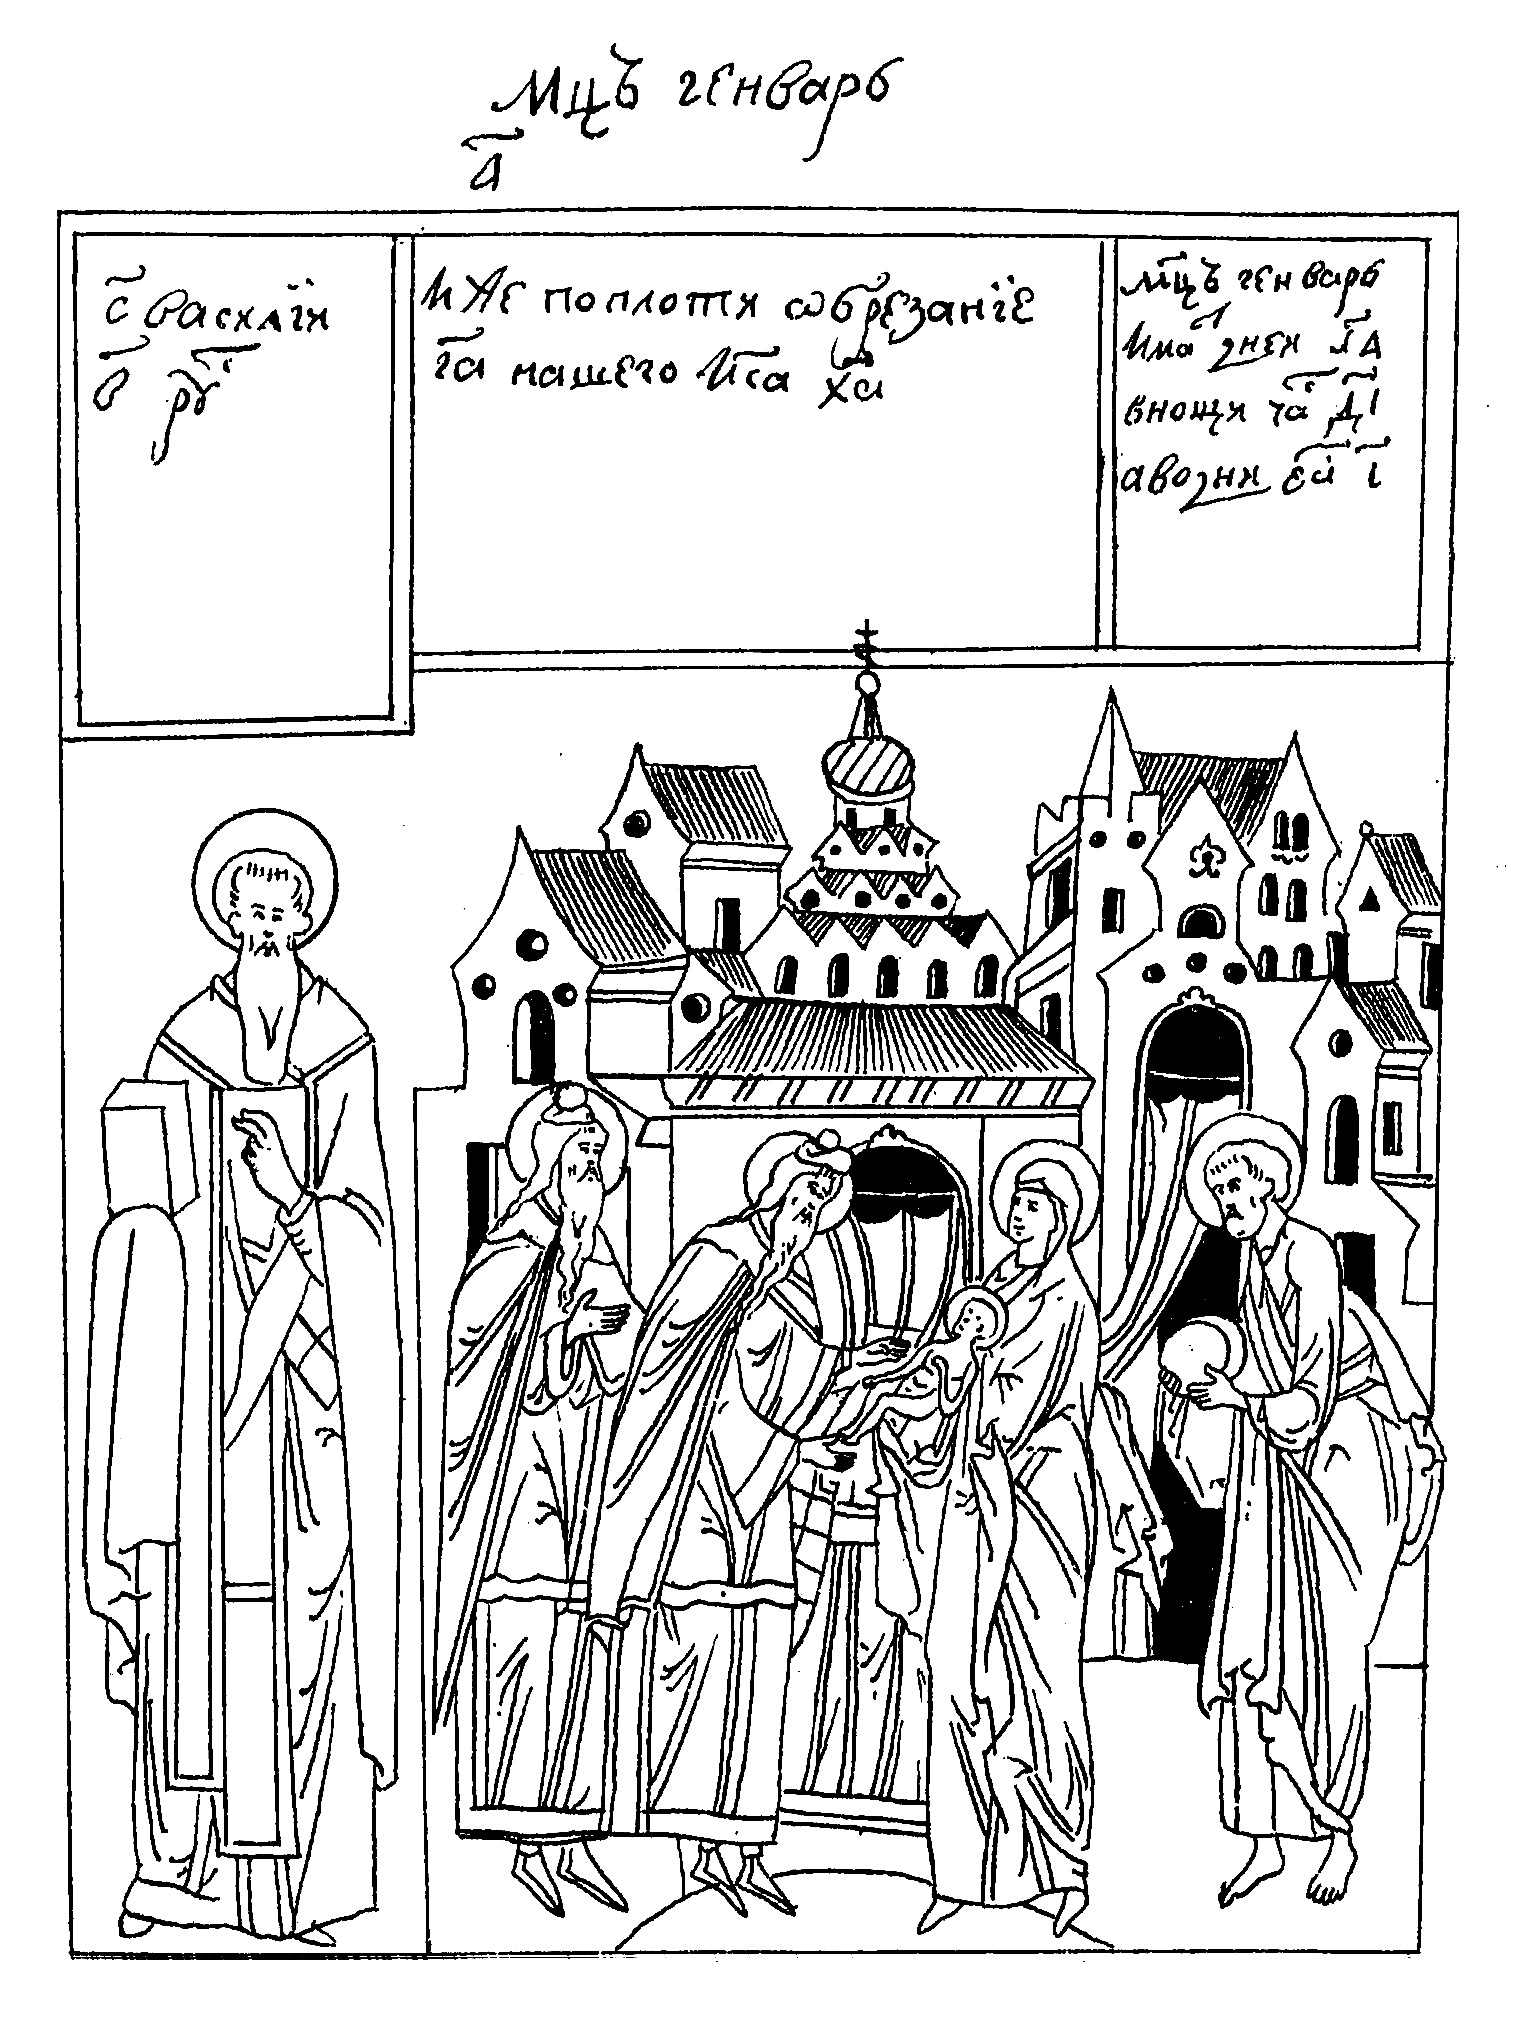 мцъ генварь
а҃
с҃ василїи
в҃ рү
иже по плоти ѡбрезанїе
га҃ нашего и҃са х҃а
мцъ генварь
има днеи л҃а
внощи ча д҃і
авозни